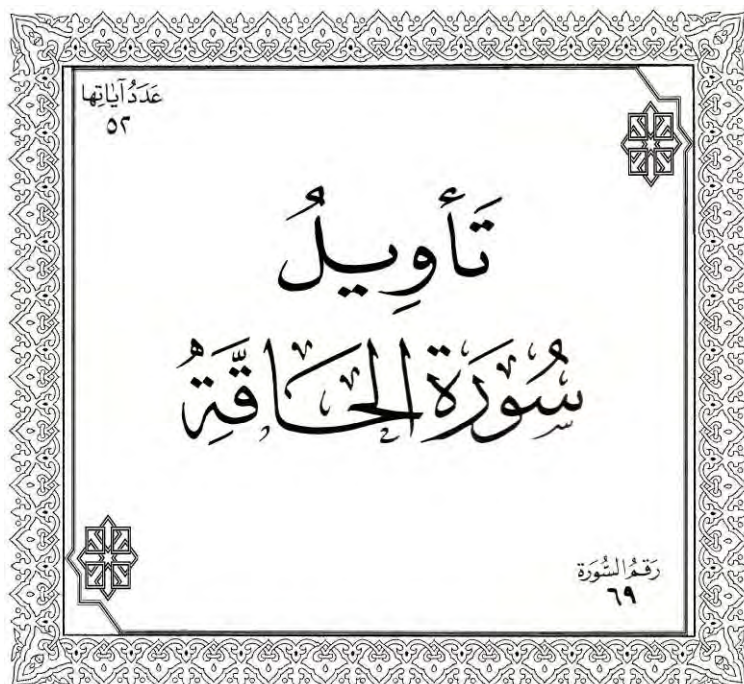 عَدَدُ آيَاتِها
٥٢
تَأْوِيلُ
سُورَةِ الْحَاقَّةِ
رَقمُ السُّورَة
٦٩